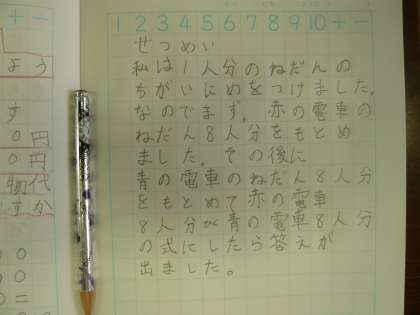 + −
よう
す
0円
0円
物代
すか
00
00
0=
1 2 3 4 5 6 7 8 9 10 + −
せつめい
私は1人分のねだんの
ちがいにめをつけました。
なのでまず、赤の電車の
ねだん8人分をもとめ
ました。その後に
青の電車のねだん8人分
をもとめて赤の電車
8人分から青の電車8人分
の式にしたら答えが
出ました。